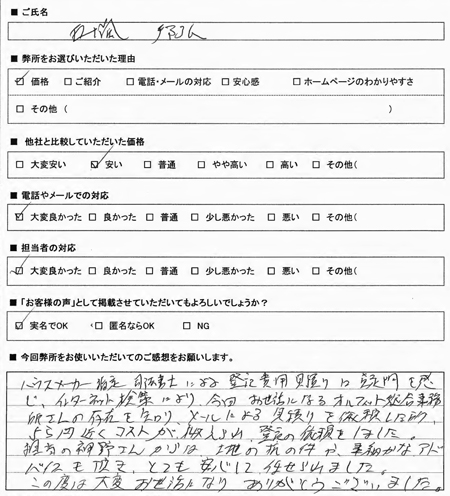 ■ ご氏名
■ 弊所をお選びいただいた理由
☑ 価格 □ ご紹介 □ 電話・メールの対応 □ 安心感 □ ホームページのわかりやすさ
□ その他 ( )
■ 他社と比較していただいた価格
□ 大変安い ☑ 安い □ 普通 □ やや高い □ 高い □ その他(
■ 電話やメールでの対応
☑ 大変良かった □ 良かった □ 普通 □ 少し悪かった □ 悪い □ その他(
■ 担当者の対応
☑ 大変良かった □ 良かった □ 普通 □ 少し悪かった □ 悪い □ その他(
■「お客様の声」として掲載させていただいてもよろしいでしょうか?
☑ 実名でOK □ 匿名ならOK □ NG
■ 今回弊所をお使いいただいてのご感想をお願いします。
ハウスメーカー指定 司法書士による 登記費用見積りに疑問を感
じ、インターネット検索により、今回 お世話になる オルフィット総合事務
所さんの存在を知り、メールによる見積りを依頼した所、
5万円近くコストが抑えられ、登記の依頼をしました。
担当の 野さんからは、 の件や、 かなアド
バイスも頂き、とても安心して任せられました。
この度は大変お世話になり ありがとうございました。